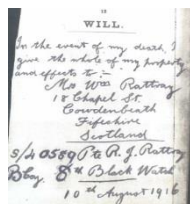 WILL.
In the event of my death I
give the whole of my property
and effects to :-
Mrs Wm Rattray
18 Chapel St.
Cowdenbeath
Fifeshire
Scotland
S/40589 Pte R. J. Rattray
B Coy. 8th Black Watch
10th August 1916